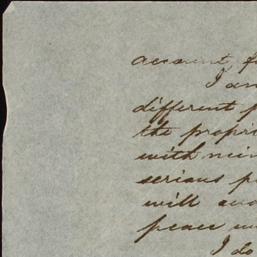 account, f
I am
different p
the propri
with min
serious p
will avo
peace w
I do